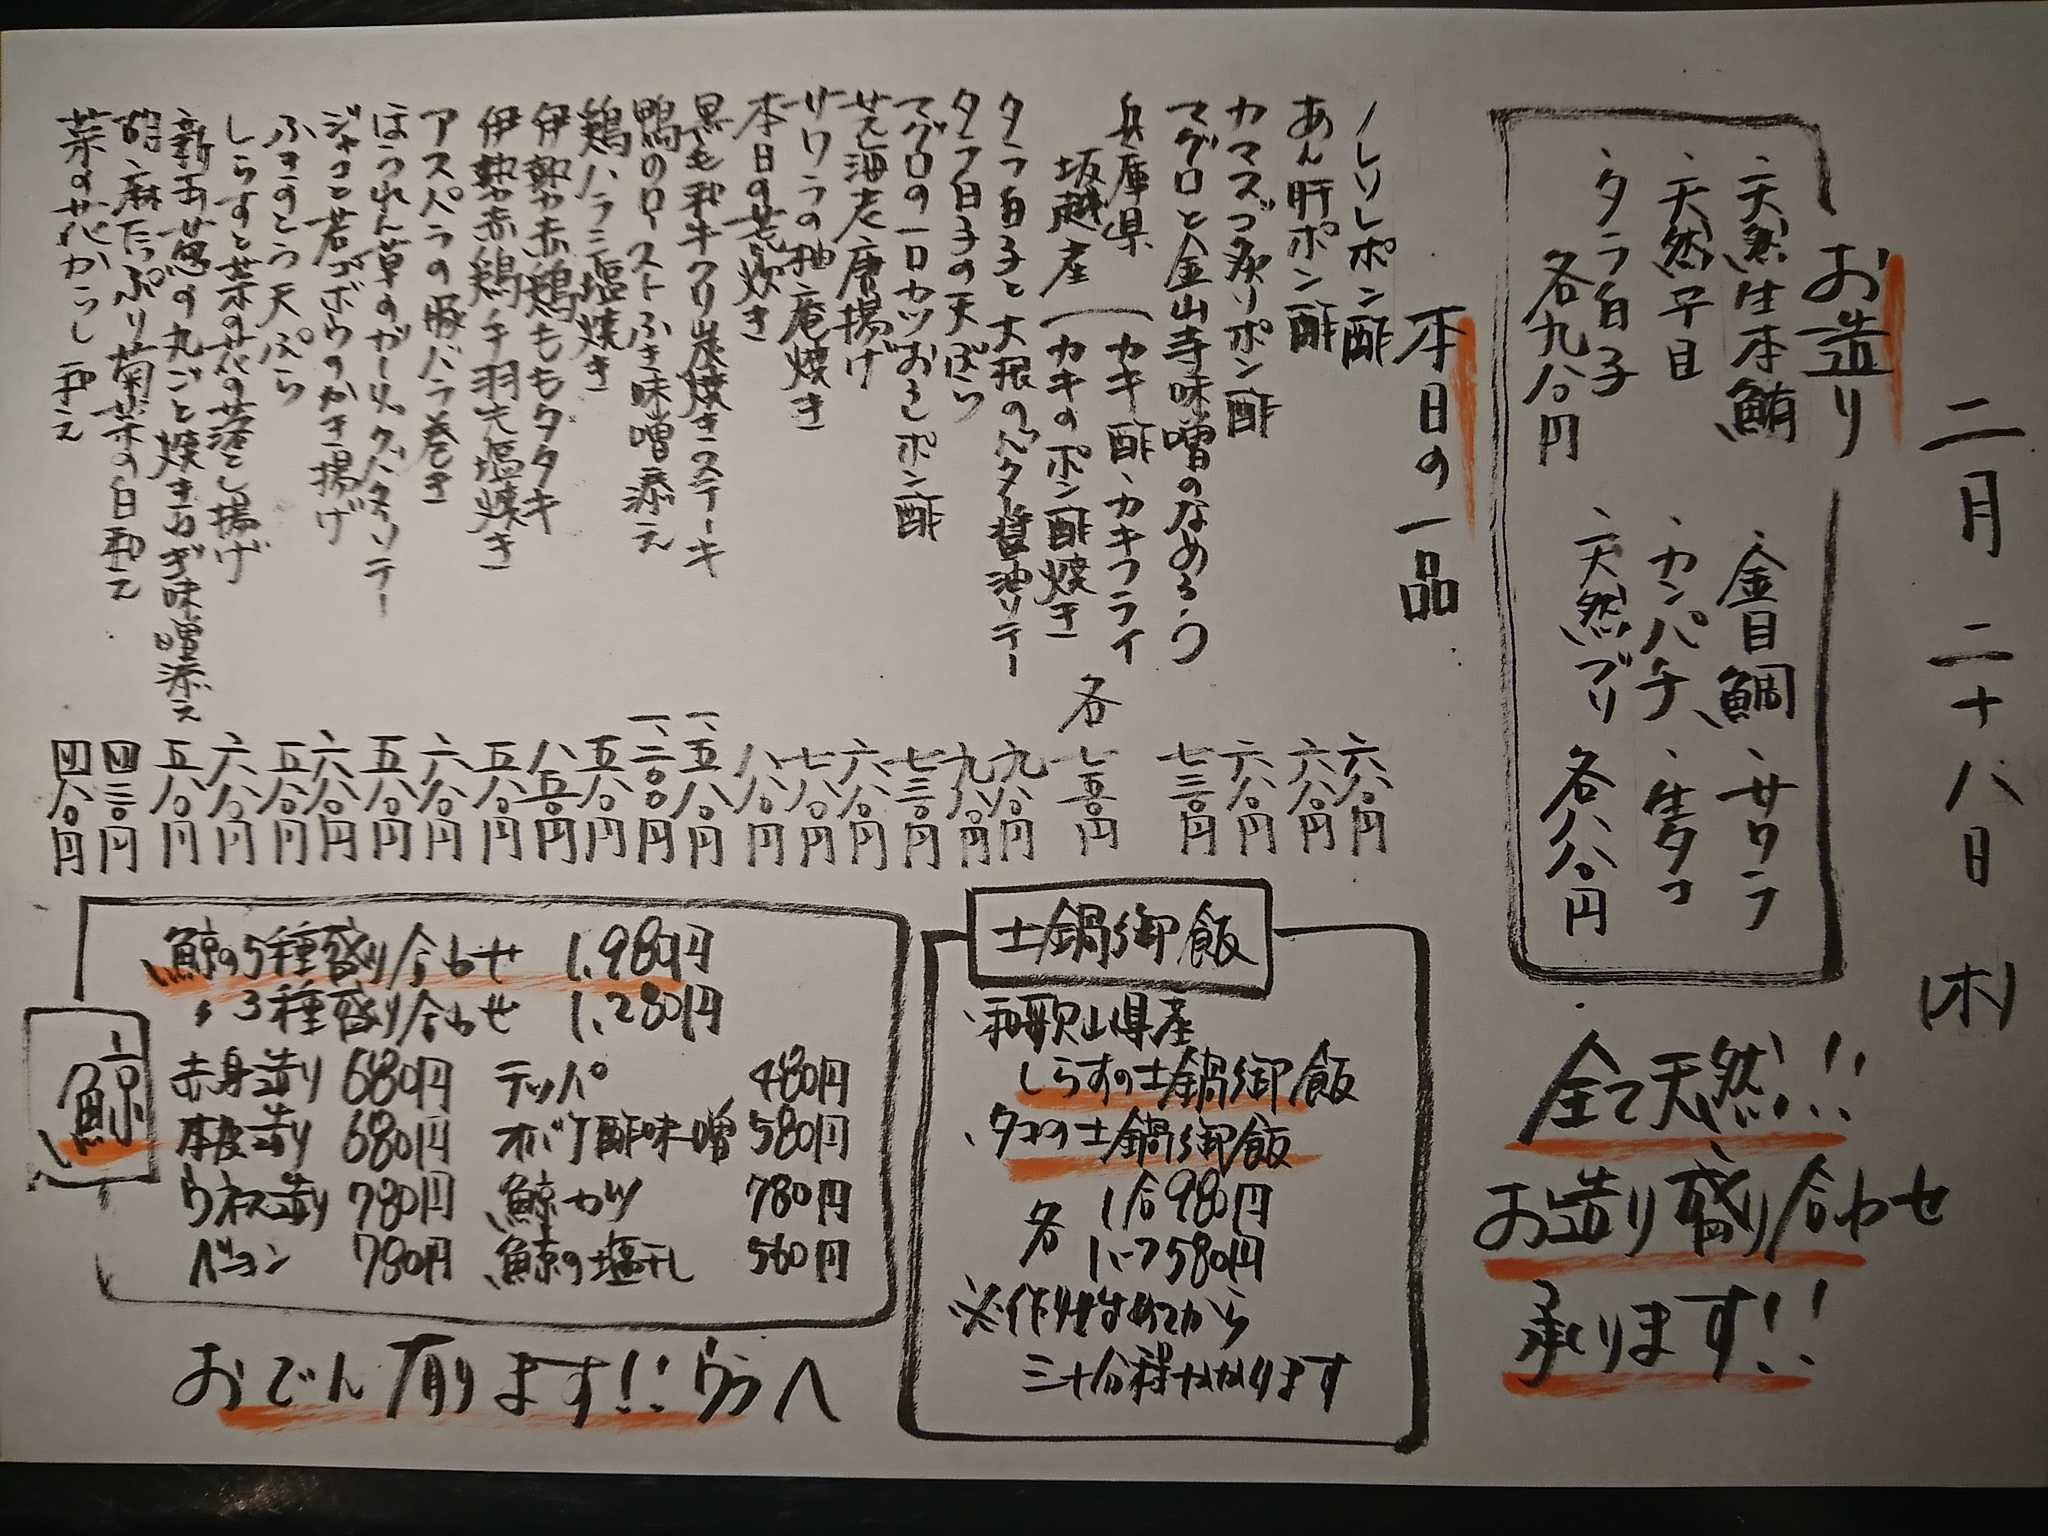 二月二十八日(木)
お造り
、天然生本鮪
、天然平目
、タラ白子
各九八〇円
、金目鯛、サワラ
、カンパチ、生タコ
、天然ブリ
各八八〇円
全て天然!!
お造り盛り合わせ
承ります!!
本日の一品
ノレソレポン酢 六八〇円
あん肝ポン酢 六八〇円
カマスゴ炙りポン酢 六八〇円
マグロと金山寺味噌のなめろう 七三〇円
兵庫県
坂越産
カキ酢、カキフライ
カキのポン酢焼き
各七五〇円
タラ白子と大根のバター醤油ソテー 九八〇円
タラ白子の天ぷら 九八〇円
マグロの一口カツおろしポン酢 七三〇円
芝海老唐揚げ 六八〇円
サワラの柚庵焼き 七八〇円
本日の荒炊き 八八〇円
黒毛和牛クリ炭焼きステーキ 一、五八〇円
鴨のローストふき味噌添え 一、二〇〇円
鶏ハラミ塩焼き 五八〇円
伊勢赤鶏ももタタキ 八五〇円
伊勢赤鶏手羽先塩焼き 五八〇円
アスパラの豚バラ巻き 六八〇円
ほうれん草のガーリックバターソテー 五八〇円
ジャコと若ゴボウのかき揚げ 六八〇円
ふきのとう天ぷら 五八〇円
しらすと菜の花の落とし揚げ 六八〇円
新玉葱の丸ごと焼きねぎ味噌添え 五八〇円
胡麻たっぷり菊菜の白和え 四二〇円
菜の花からし和え 四八〇円
土鍋御飯
、和歌山県産
しらすの土鍋御飯
、タコの土鍋御飯
各 1合980円
1ハーフ580円
※作り始めてから
三十分程かかります
鯨
鯨の5種盛り合わせ 1,980円
〃3種盛り合わせ 1,280円
赤身造り 680円 テッパ 480円
本皮造り 680円 オバケ酢味噌 580円
ウネス造り 780円 鯨カツ 780円
ベーコン 780円 鯨の塩干し 560円
おでん有ります!!ウラへ